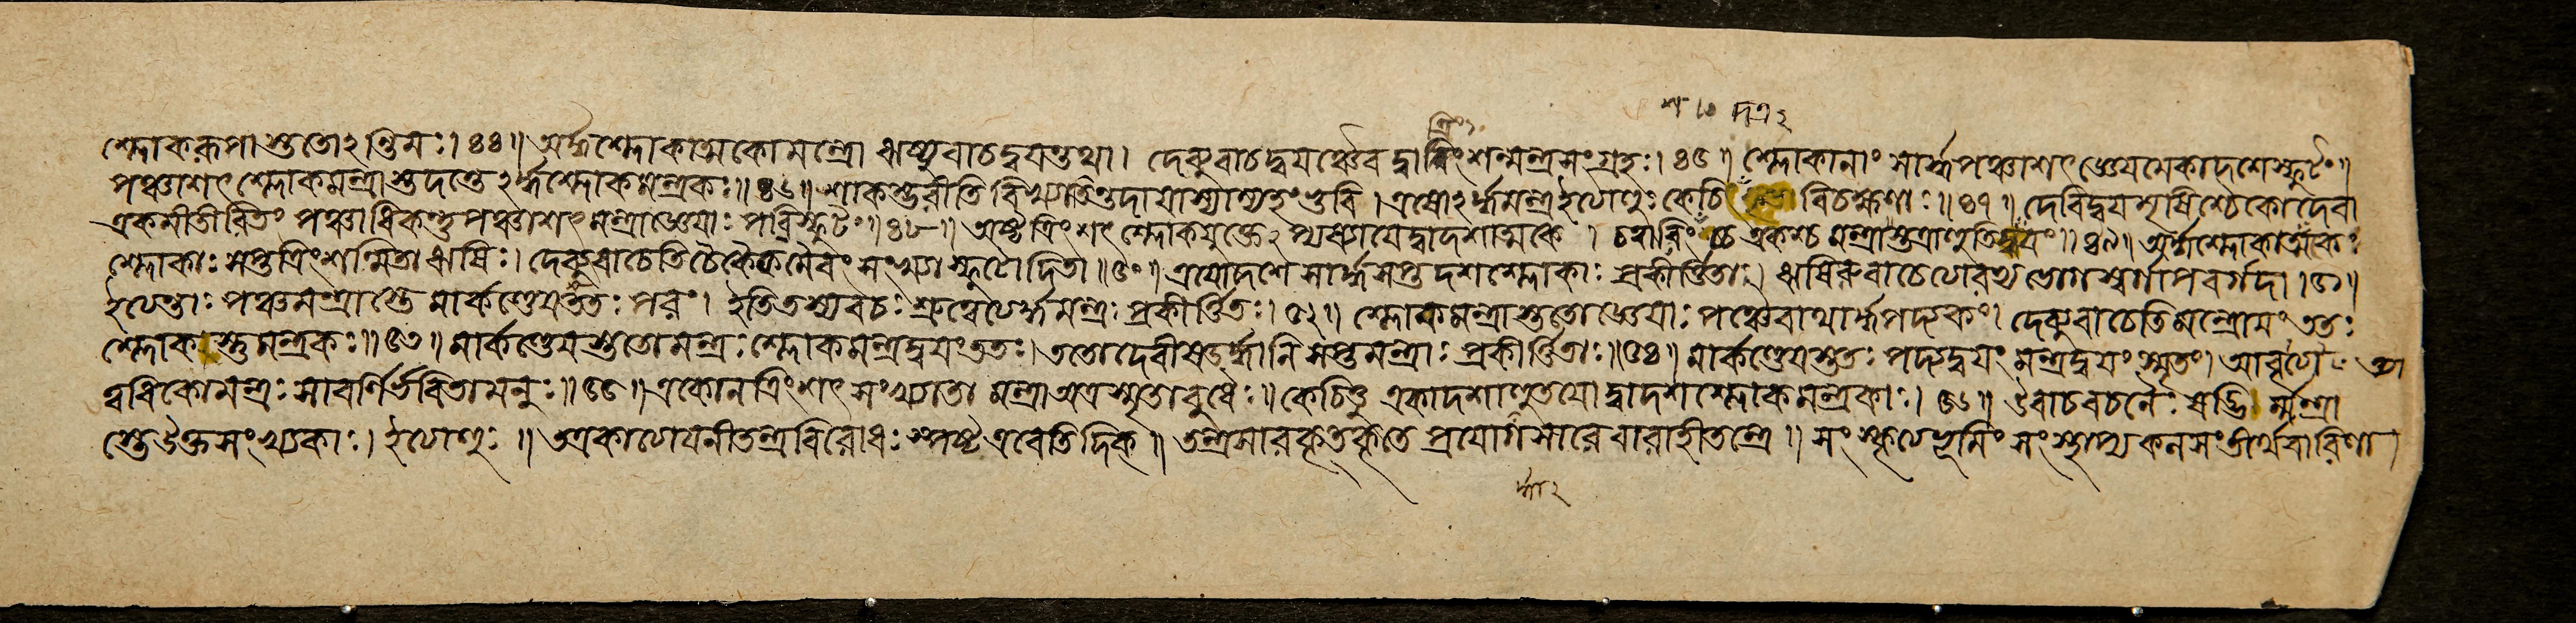 শ্লোকরূপাস্ততোঽন্তিমঃ। ৪৪॥ অর্দ্ধশ্লোকাত্মকো মন্ত্রো ঋষ্যুবাচদ্বয়ন্তথা। দেব্যুবাচদ্বয়ঞ্চৈব দ্বাবিংশন্মন্ত্রসংগ্রহঃ। ৪৫॥ শ্লোকানাং সার্দ্ধপঞ্চাশৎ জ্ঞেয়মেকাদশেস্ফুটং॥
পঞ্চাশৎ শ্লোকমন্ত্রাস্তদন্তেঽর্দ্ধশ্লোকমন্ত্রকঃ॥ ৪৬॥ শাকম্ভরীতি বিখ্যাতিন্তদা যাস্যাম্যহং ভুবি। এষোঽর্দ্ধমন্ত্র ইত্যোহুঃ কেচি বিচক্ষণাঃ॥ ৪৭॥ দেবিদ্বয়মৃষিশ্চৈকো দেবা
একমীতীরিতং পঞ্চাধিকন্তু পঞ্চাশৎ মন্ত্রাজ্ঞেয়াঃ পরিস্ফুটং॥ ৪৮॥ অষ্টত্রিংশৎ শ্লোকযুক্তেঽপ্যধ্যায়েদ্বাদশাত্মকে। চত্বারিং চ একশ্চ মন্ত্রাস্তত্রাহুতিদ্বয়ং॥ ৪৯॥ অর্দ্ধশ্লোকাত্মকং
শ্লোকাঃ সপ্তত্রিংশন্মিতা ঋষিঃ। দেব্যুবাচেতি চৈকৈকমেবং সংখ্যা স্ফুটোদিতা॥ ৫০॥ ত্রয়োদশে সার্দ্ধসপ্তদশশ্লোকাঃ প্রকীর্ত্তিতাঃ। ঋষিরুবাচেত্যেবথ ভোগস্বর্গাপবর্গদা। ৫১॥
ইত্যন্তাঃ পঞ্চমন্ত্রাস্তে মার্কণ্ডেয়স্ততঃ পরং। ইতি তস্য বচঃ শ্রুত্বেত্যর্দ্ধমন্ত্রঃ প্রকীর্ত্তিতঃ। ৫২॥ শ্লোকমন্ত্রাস্ততো জ্ঞেয়াঃ পঞ্চৈবাথার্দ্ধপদ্যকং। দেব্যুবাচেতি মন্ত্রোয়ং ততঃ
শ্লোকস্তু মন্ত্রকঃ॥ ৫৩॥ মার্কণ্ডেয়স্ততো মন্ত্রঃ শ্লোকমন্ত্রদ্বয়ং ততঃ। ততো দেবীষড়র্দ্ধানি সপ্তমন্ত্রাঃ প্রকীর্ত্তিতাঃ॥ ৫৪॥ মার্কণ্ডেয়স্ততঃ পদ্যদ্বয়ং মন্ত্রদ্বয়ং স্মৃতং। আবৃত্যে
ত্বধিকো মন্ত্রঃ সাবর্ণির্ভবিতা মনুঃ॥ ৫৫॥ একোনত্রিংশৎ সংখ্যাতা মন্ত্রা অত্র স্মৃতা বুধৈঃ॥ কেচিত্তু একাদশাহুতয়ো দ্বাদশশ্লোকমন্ত্রকাঃ। ৫৬॥ উবাচবচনৈঃ ষড়্ভির্ম্মন্ত্রা
স্তে উক্তসংখ্যকাঃ। ইত্যাহুঃ॥ অত্র কাত্যায়নীতন্ত্রবিরোধঃ স্পষ্ট এবেতি দিক্॥ তন্ত্রসারকৃত্কৃতে প্রয়োগসারে বারাহীতন্ত্রে॥ সংস্কৃত্যে ভূমিং সংস্তাপ্য কলসং তীর্থবারিণা।